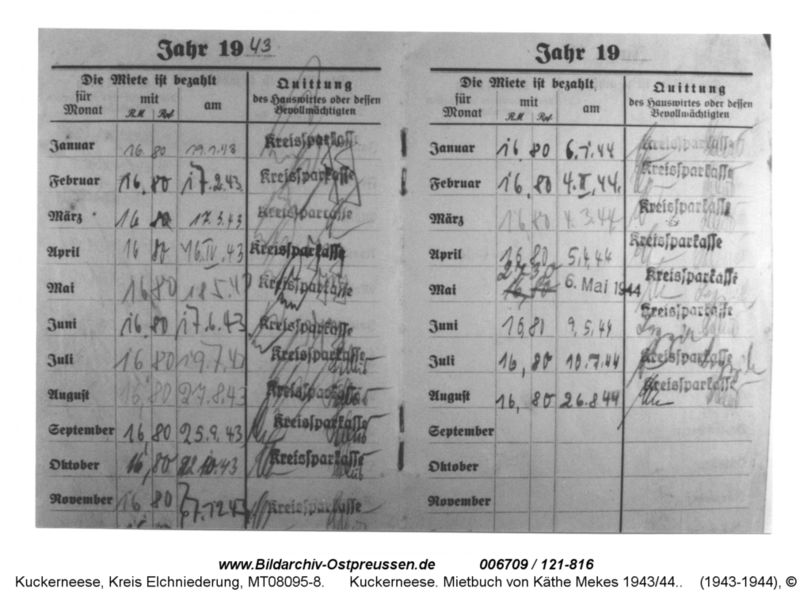 Jahr 1943
Die Miete ist bezahlt
für Monat mit RM Rpf am
Quittung des Hauswirtes oder dessen Bevollmächtigten
Januar 16 80 19.1.43 Kreissparkasse
Februar 16,80 17.2.43 Kreissparkasse
März 16 80 17.3.43 Kreissparkasse
April 16 80 16.IV.43 Kreissparkasse
Mai 16 80 18.5.43 Kreissparkasse
Juni 16,80 17.6.43 Kreissparkasse
Juli 16 80 19.7.43 Kreissparkasse
August 16 80 27.8.43 Kreissparkasse
September 16,80 25.9.43 Kreissparkasse
Oktober 16,80 22.10.43 Kreissparkasse
November 16 80 Kreissparkasse
Jahr 19
Die Miete ist bezahlt
für Monat mit RM Rpf am
Quittung des Hauswirtes oder dessen Bevollmächtigten
Januar 16,80 6.1.44 Kreissparkasse
Februar 16,80 4.II.44. Kreissparkasse
März 16 80 4.3.44 Kreissparkasse
April 16,80 5.4.44 Kreissparkasse
Mai 16,80 6. Mai 1944 Kreissparkasse
Juni 16,80 9.5.44 Kreissparkasse
Juli 16,80 10.7.44 Kreissparkasse
August 16,80 26.8.44 Kreissparkasse
September
Oktober
November
www.Bildarchiv-Ostpreussen.de 006709 / 121-816
Kuckerneese, Kreis Elchniederung, MT08095-8. Kuckerneese. Mietbuch von Käthe Mekes 1943/44.. (1943-1944), ©